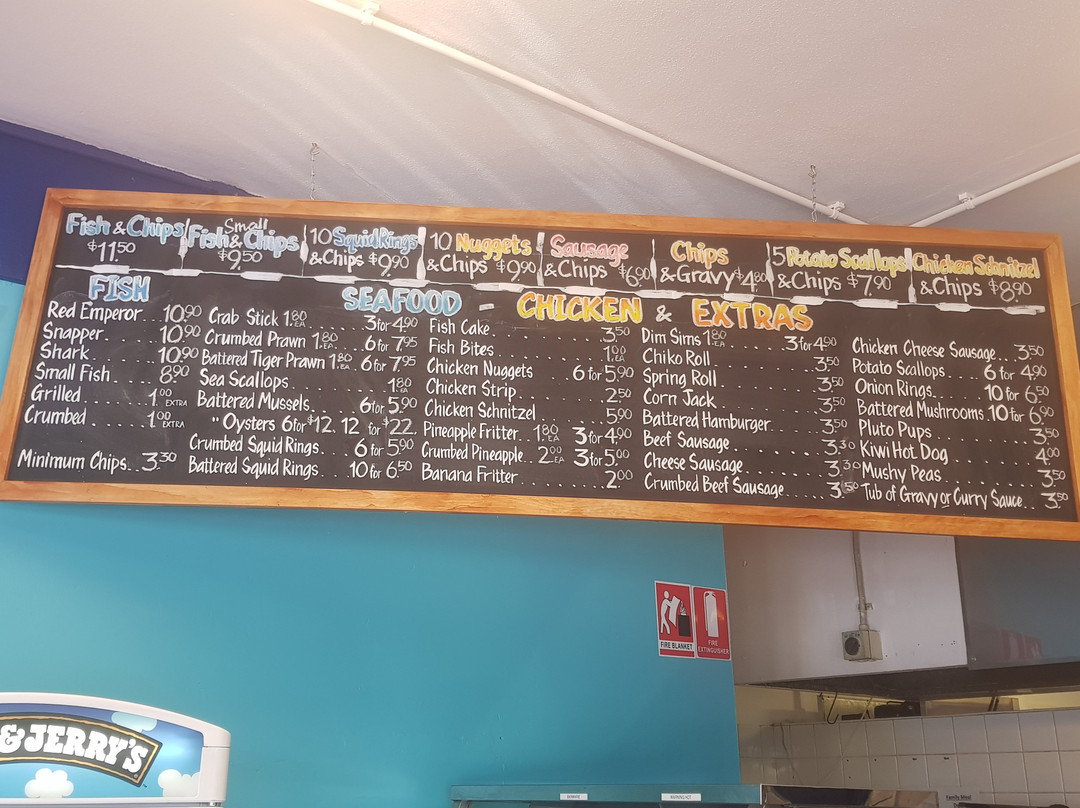 Fish & Chips
$11.50
Small
Fish & Chips
$9.50
10 Squid Rings
& Chips $9.90
10 Nuggets
& Chips $9.90
Sausage
& Chips $6.90
Chips
& Gravy $4.80
5 Potato Scallops
& Chips $7.90
Chicken Schnitzel
& Chips $8.90
FISH
Red Emperor... 10.90
Snapper....... 10.90
Shark......... 10.90
Small Fish.... 8.90
Grilled....... 1.00 EXTRA
Crumbed....... 1.00 EXTRA
Minimum Chips... 3.30
SEAFOOD - CHICKEN & EXTRAS
Crab Stick 1.80 EA....... 3 for 4.90
Crumbed Prawn 1.80 EA.. 6 for 7.95
Battered Tiger Prawn 1.80 EA 6 for 7.95
Sea Scallops............ 1.80
Battered Mussels....... 6 for 5.90
" Oysters 6 for $12. 12 for $22.
Crumbed Squid Rings.... 6 for 5.90
Battered Squid Rings.... 10 for 6.50
Fish Cake............ 3.50
Fish Bites........... 1.00 EA
Chicken Nuggets 6 for 5.90
Chicken Strip........ 2.50
Chicken Schnitzel.... 5.90
Pineapple Fritter.. 1.80 EA 3 for 4.90
Crumbed Pineapple... 2.00 EA 3 for 5.00
Banana Fritter........ 2.00
Dim Sims 1.80 EA........ 3 for 4.90
Chiko Roll............ 3.50
Spring Roll........... 3.50
Corn Jack............. 3.50
Battered Hamburger..... 3.50
Beef Sausage.......... 3.30
Cheese Sausage........ 3.30
Crumbed Beef Sausage..... 3.50
Chicken Cheese Sausage... 3.50
Potato Scallops..... 6 for 4.90
Onion Rings........ 10 for 6.50
Battered Mushrooms 10 for 6.90
Pluto Pups........... 3.50
Kiwi Hot Dog......... 4.00
Mushy Peas........... 3.50
Tub of Gravy or Curry Sauce... 3.50
FIRE BLANKET
FIRE
EXTINGUISHER
& JERRY'S
Family Meal